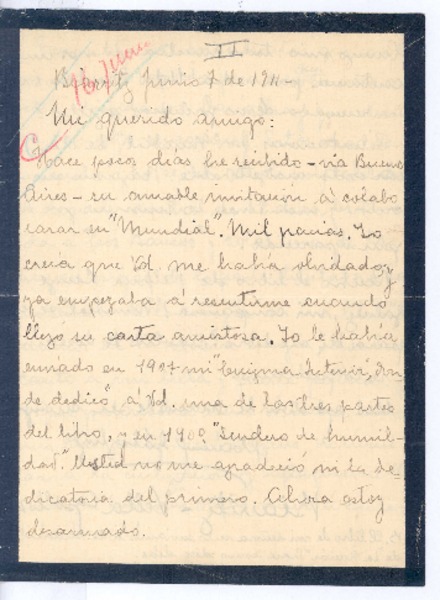 II
Biarritz Junio 7 de 1911-
16 Junio
Mi querido amigo:
Hace pocos dias he recibido - via Buenos
Aires - su amable invitacion á colabo
rar en "Mundial". Mil gracias. Yo
creia que Vd. me habia olvidado, y
ya empezaba á resentirme cuando
llegó su carta amistosa. Yo le habia
enviado en 1907 mi "Enigma Interior", don-
de dedicó á Vd. una de las tres partes
del libro, y en 1909 "Sendero de humil-
dad". Usted no me agradeció ni la de-
dicatoria del primero. Ahora estoy
desarmado.